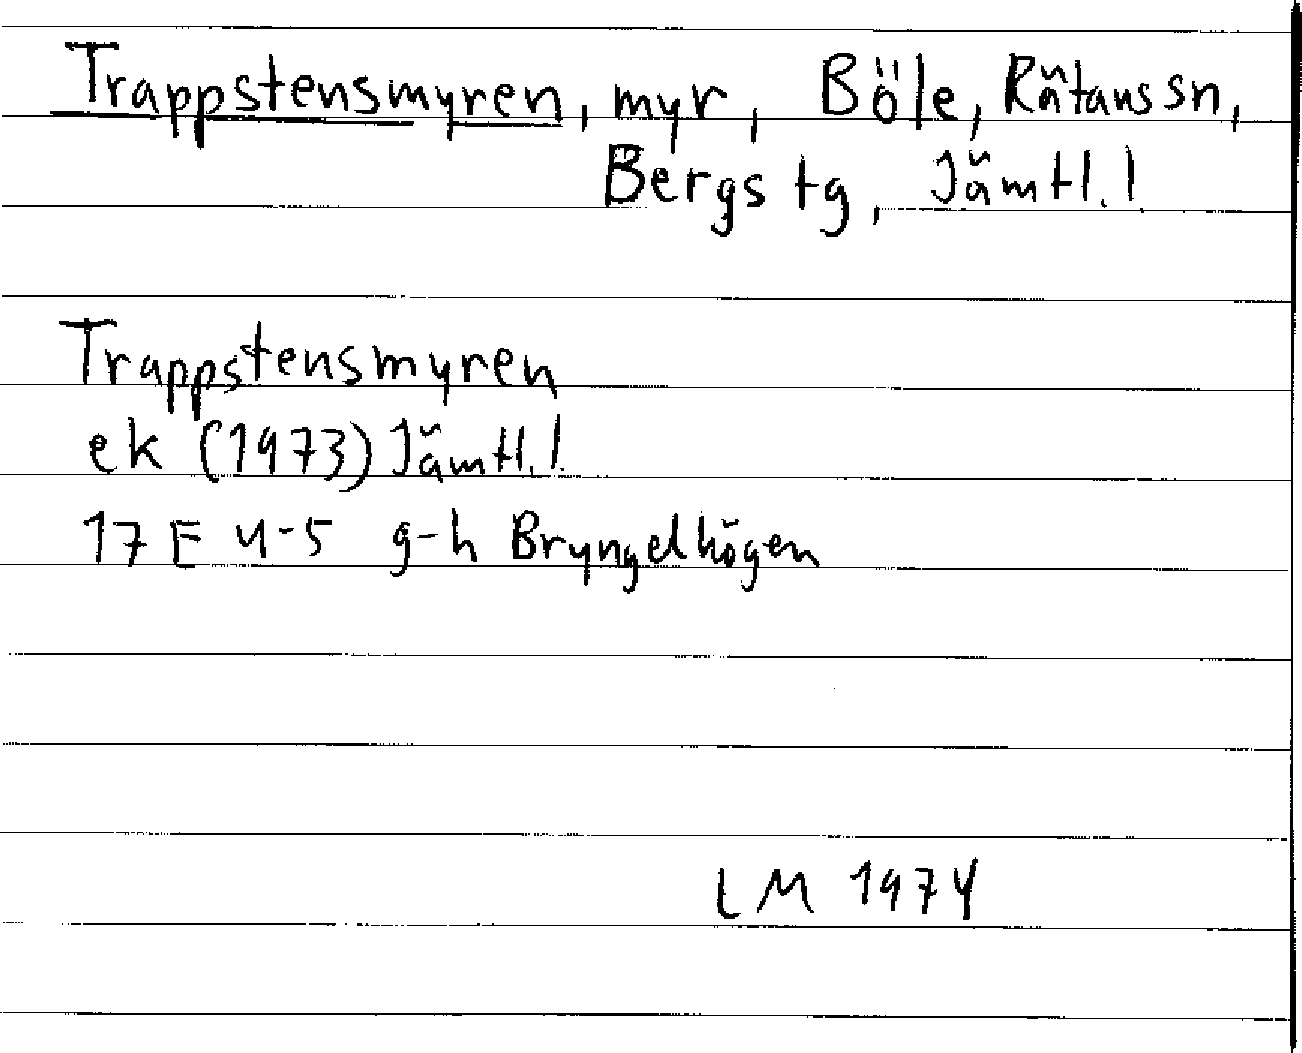 Trappstensmyren, myr, Böle, Rätans sn,
Bergs tg, Jämtl. l.
Trappstensmyren
ek (1973) Jämtl. l.
17 E 4-5 g-h Bryngelhögen
LM 1974